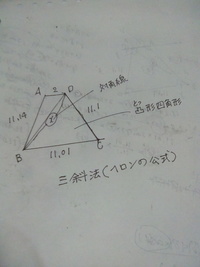 対角線
A 2 D
11.14
11.1
とつ
凸形四角形
B
11.01
C
三斜法(ヘロンの公式)